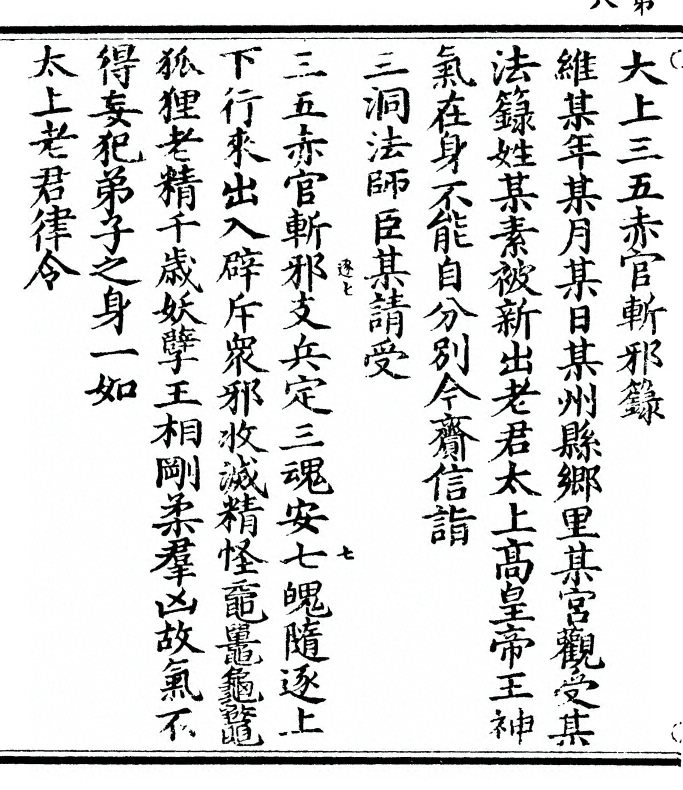 大上三五赤官斬邪籙
維某年某月某日某州縣鄉里某宮觀受某
法籙姓某素被新出老君太上高皇帝王神
氣在身不能自分別今齎信詣
三洞法師臣某請受
三五赤官斬邪支兵定三魂安七魄隨逐上
下行來出入辟斥衆邪收滅精怪黿鼉龜鼈
狐狸老精千歲妖孽王相剛柔羣凶故氣不
得妄犯弟子之身一如
太上老君律令